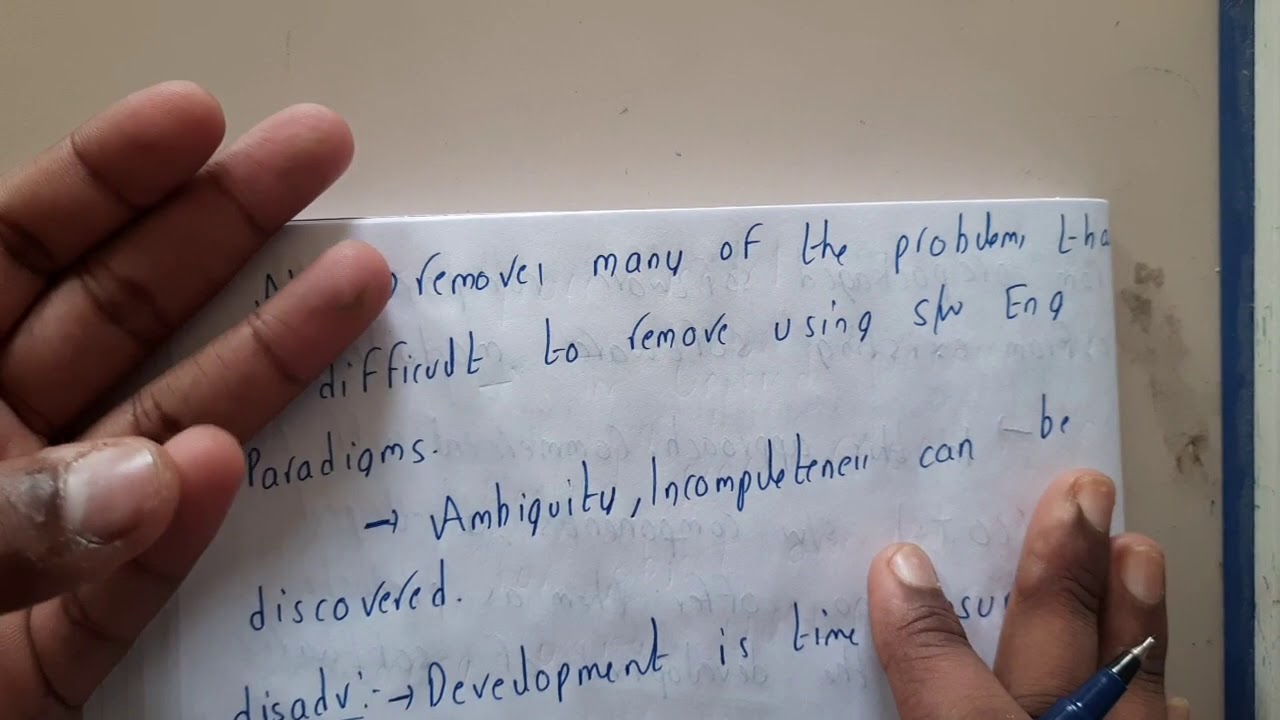 removes many of the problems tha
difficult to remove using s/w Eng
Paradigms.
→ Ambiguity, Incompleteness can be
discovered.
disadv:- → Development is time